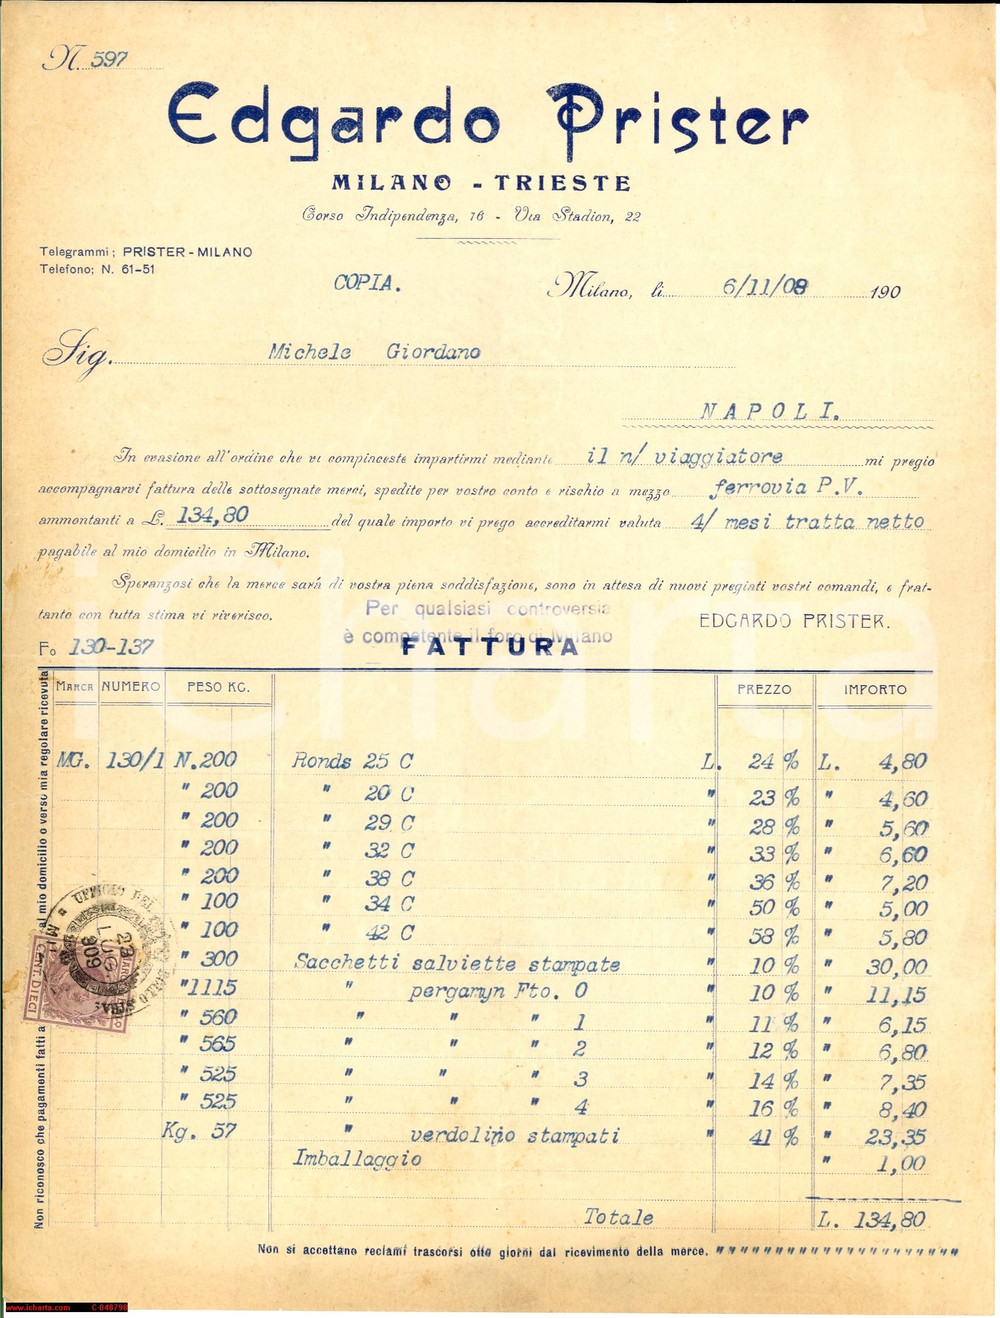 N. 597
Edgardo Prister
MILANO - TRIESTE
Corso Indipendenza, 16 - Via Stadion, 22
Telegrammi; PRISTER-MILANO
Telefono; N. 61-51
COPIA.
Milano, li 6/11/09 190
Sig. Michele Giordano
NAPOLI.
In evasione all'ordine che vi compiaceste impartirmi mediante il n/ viaggiatore mi pregio
accompagnarvi fattura delle sottosegnate merci, spedite per vostro conto e rischio a mezzo ferrovia P.V.
ammontanti a L. 134,80 del quale importo vi prego accreditarmi valuta 4/ mesi tratta netto
pagabile al mio domicilio in Milano.
Speranzosi che la merce sará di vostra piena soddisfazione, sono in attesa di nuovi pregiati vostri comandi, e frat-
tanto con tutta stima vi riverisco.
Per qualsiasi controversia
è competente il foro di Milano
EDGARDO PRISTER.
Fo 130-137
FATTURA
MARCA NUMERO PESO KG. PREZZO IMPORTO
MG. 130/1 N.200 Ronds 25 C L. 24 % L. 4,80
" 200 " 20 C " 23 % " 4,60
" 200 " 29 C " 28 % " 5,60
" 200 " 32 C " 33 % " 6,60
" 200 " 38 C " 36 % " 7,20
" 100 " 34 C " 50 % " 5,00
" 100 " 42 C " 58 % " 5,80
" 300 Sacchetti salviette stampate " 10 % " 30,00
"1115 " pergamyn Fto. 0 " 10 % " 11,15
" 560 " " " 1 " 11 % " 6,15
" 565 " " " 2 " 12 % " 6,80
" 525 " " " 3 " 14 % " 7,35
" 525 " " " 4 " 16 % " 8,40
Kg. 57 " verdolino stampati " 41 % " 23,35
Imballaggio " 1,00
Totale L. 134,80
Non si accettano reclami trascorsi otto giorni dal ricevimento della merce.
Non riconosco che pagamenti fatti a al mio domicilio o verso mia regolare ricevuta
UFFICIO DEL
23 LUG 909
CENT. DIECI
icharta
www.icharta.com C-048798